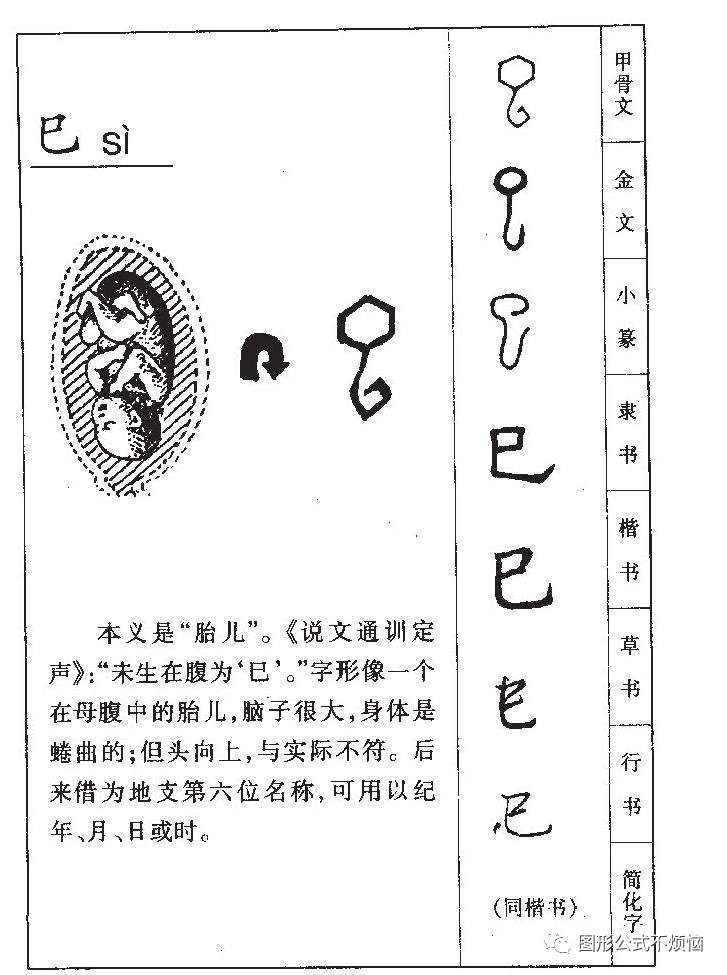 巳 sì
本义是“胎儿”。《说文通训定
声》:“未生在腹为‘巳’。”字形像一个
在母腹中的胎儿,脑子很大,身体是
蜷曲的;但头向上,与实际不符。后
来借为地支第六位名称,可用以纪
年、月、日或时。
甲骨文
金文
小篆
隶书
巳
楷书
巳
草书
巳
行书
巳
简化字
(同楷书)
图形公式不烦恼